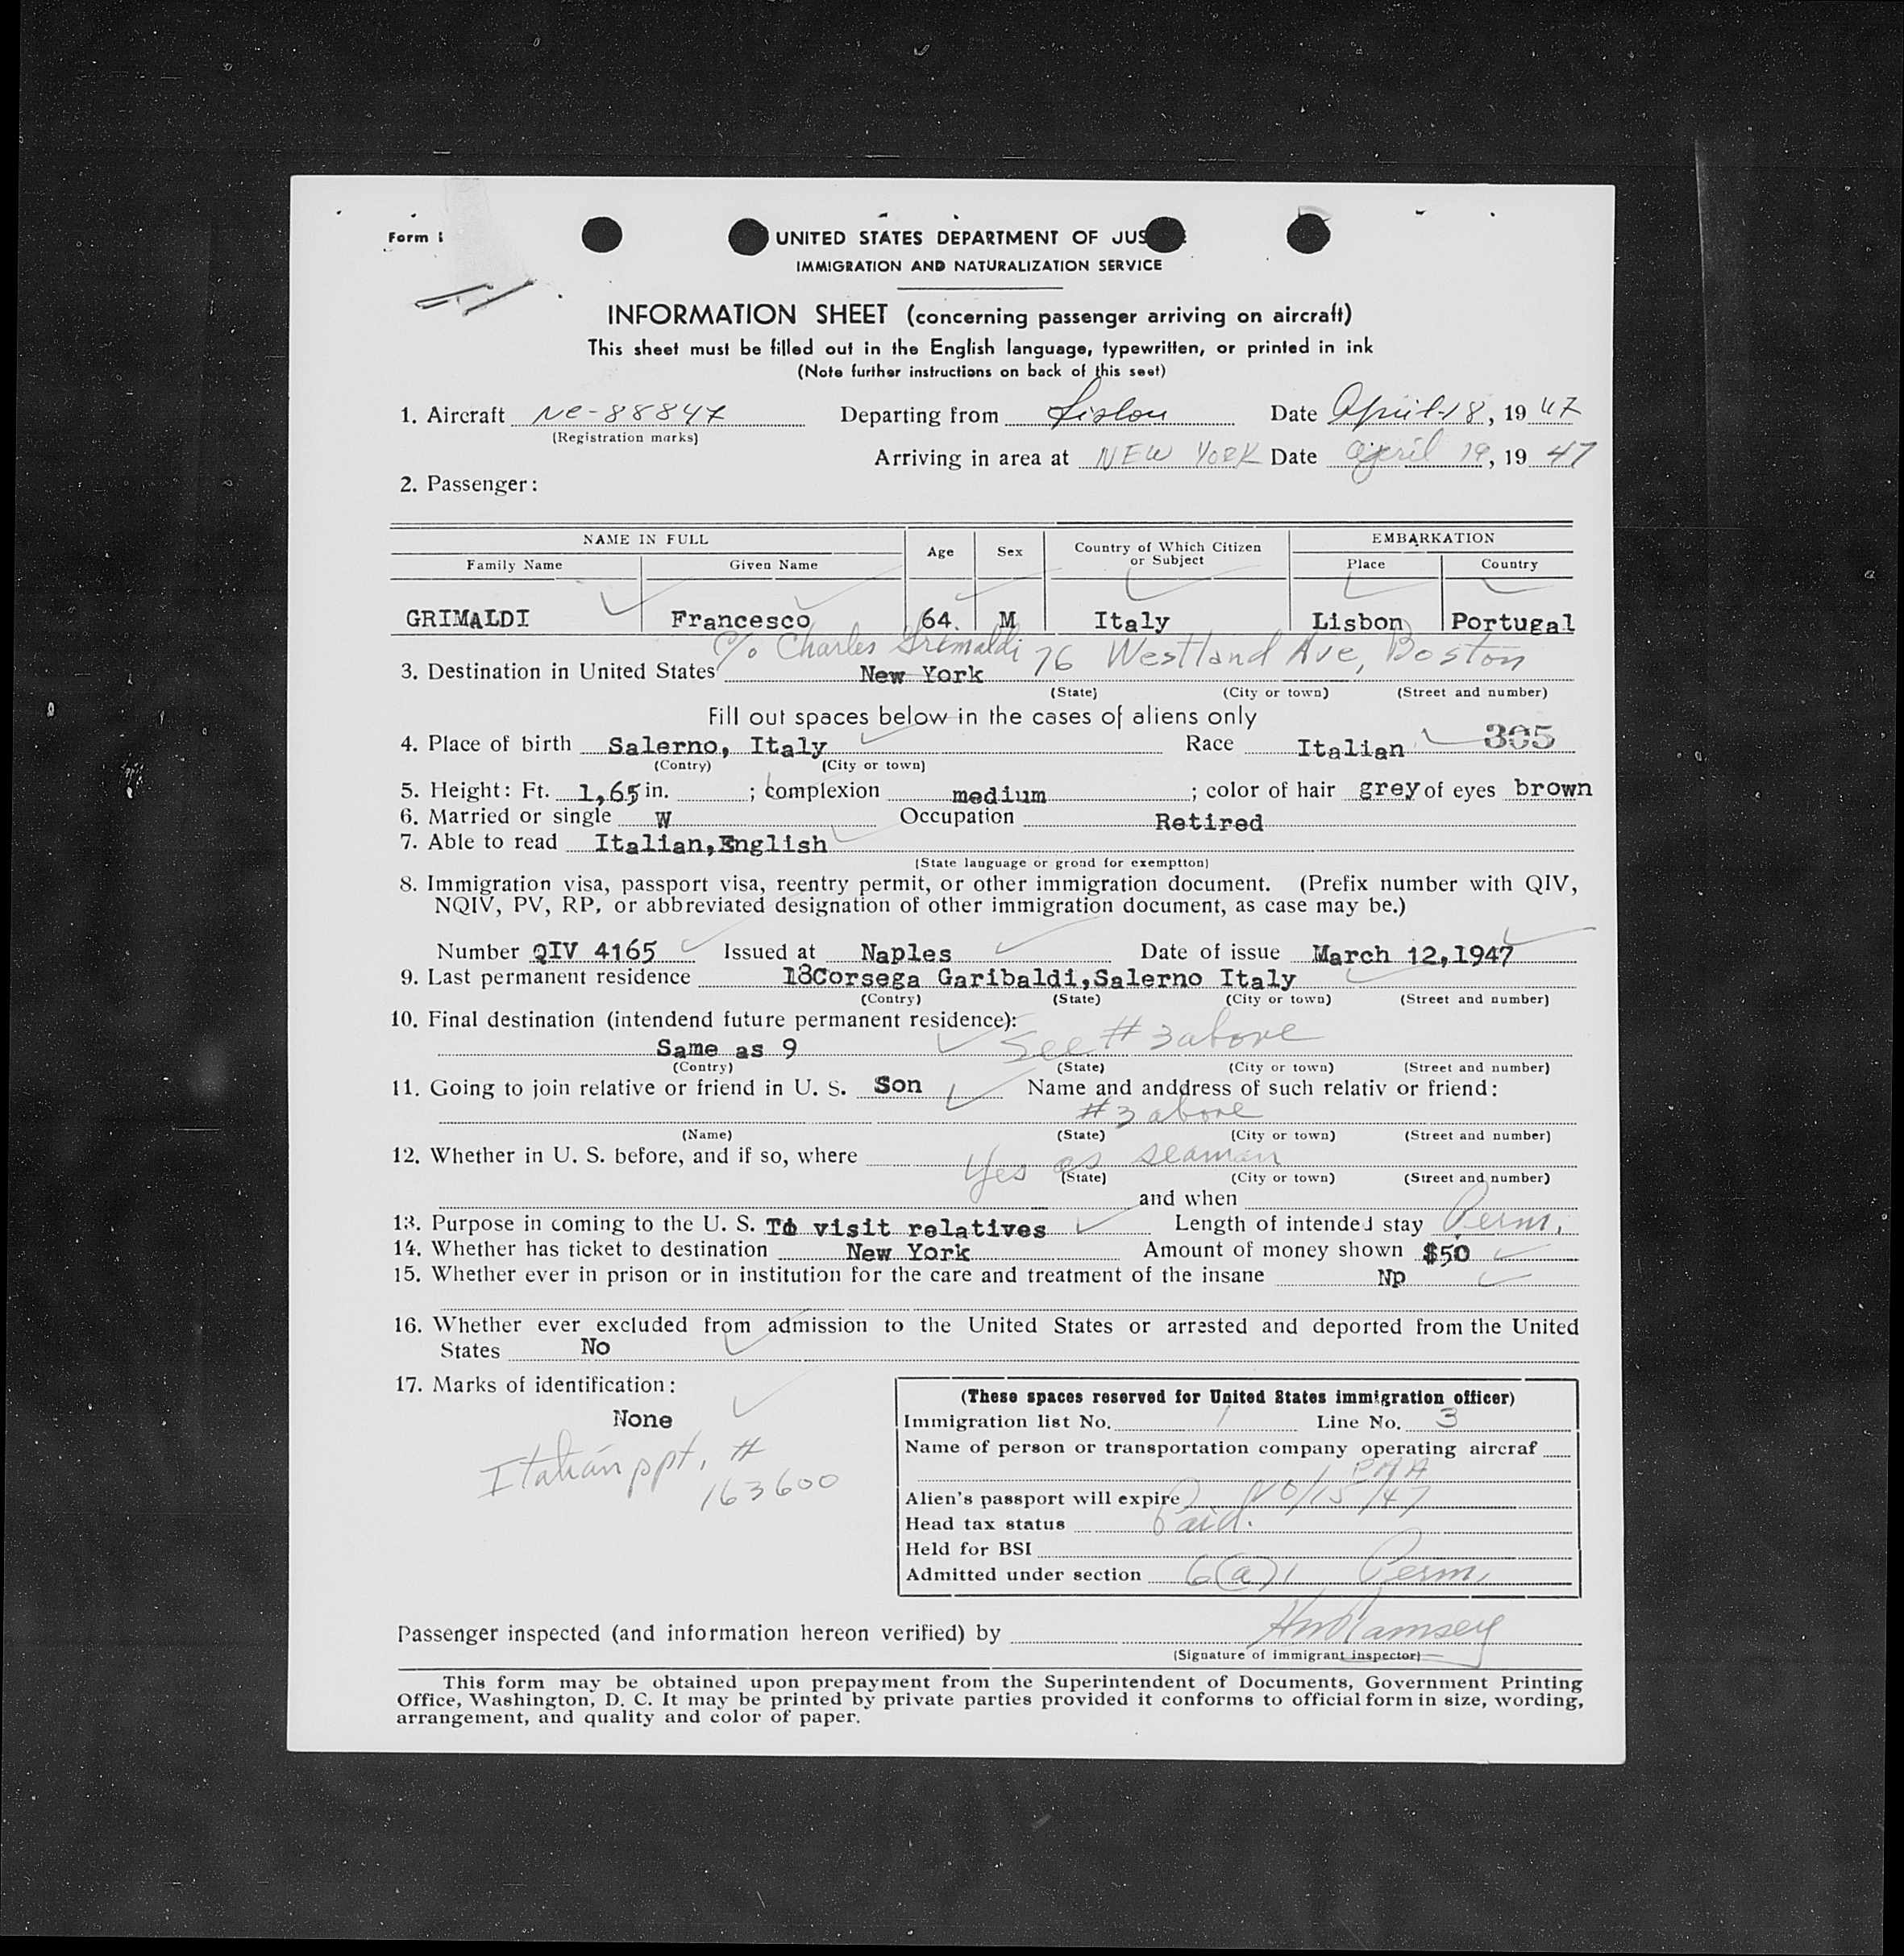 Form I
UNITED STATES DEPARTMENT OF JUS
IMMIGRATION AND NATURALIZATION SERVICE
INFORMATION SHEET (concerning passenger arriving on aircraft)
This sheet must be filled out in the English language, typewritten, or printed in ink
(Note further instructions on back of this seet)
1. Aircraft NC-88847 Departing from Lisbon Date April 18, 1947
(Registration marks)
Arriving in area at NEW YORK Date April 19, 1947
2. Passenger:
NAME IN FULL Age Sex Country of Which Citizen or Subject EMBARKATION
Family Name Given Name Place Country
GRIMALDI Francesco 64. M Italy Lisbon Portugal
c/o Charles Grimaldi 76 Westland Ave, Boston
3. Destination in United States New York
(State) (City or town) (Street and number)
Fill out spaces below in the cases of aliens only
4. Place of birth Salerno, Italy Race Italian 305
(Contry) (City or town)
5. Height: Ft. 1,65 in. ; complexion medium ; color of hair grey of eyes brown
6. Married or single W Occupation Retired
7. Able to read Italian,English
(State language or grond for exemptton)
8. Immigration visa, passport visa, reentry permit, or other immigration document. (Prefix number with QIV,
NQIV, PV, RP, or abbreviated designation of other immigration document, as case may be.)
Number QIV 4165 Issued at Naples Date of issue March 12,1947
9. Last permanent residence 18Corsega Garibaldi,Salerno Italy
(Contry) (State) (City or town) (Street and number)
10. Final destination (intendend future permanent residence):
Same as 9 See # 3 above
(Contry) (State) (City or town) (Street and number)
11. Going to join relative or friend in U. S. Son Name and anddress of such relativ or friend:
# 3 above
(Name) (State) (City or town) (Street and number)
12. Whether in U. S. before, and if so, where Yes as seaman
(State) (City or town) (Street and number)
and when
13. Purpose in coming to the U. S. To visit relatives Length of intended stay Perm.
14. Whether has ticket to destination New York Amount of money shown $50
15. Whether ever in prison or in institution for the care and treatment of the insane Np
16. Whether ever excluded from admission to the United States or arrested and deported from the United
States No
17. Marks of identification:
None
Italian ppt. #
163600
(These spaces reserved for United States immigration officer)
Immigration list No. 1 Line No. 3
Name of person or transportation company operating aircraf
PAA
Alien's passport will expire /15/47
Head tax status Paid.
Held for BSI
Admitted under section 6(a)1 Perm.
Passenger inspected (and information hereon verified) by Ramsey
(Signature of immigrant inspector)
This form may be obtained upon prepayment from the Superintendent of Documents, Government Printing
Office, Washington, D. C. It may be printed by private parties provided it conforms to official form in size, wording,
arrangement, and quality and color of paper.